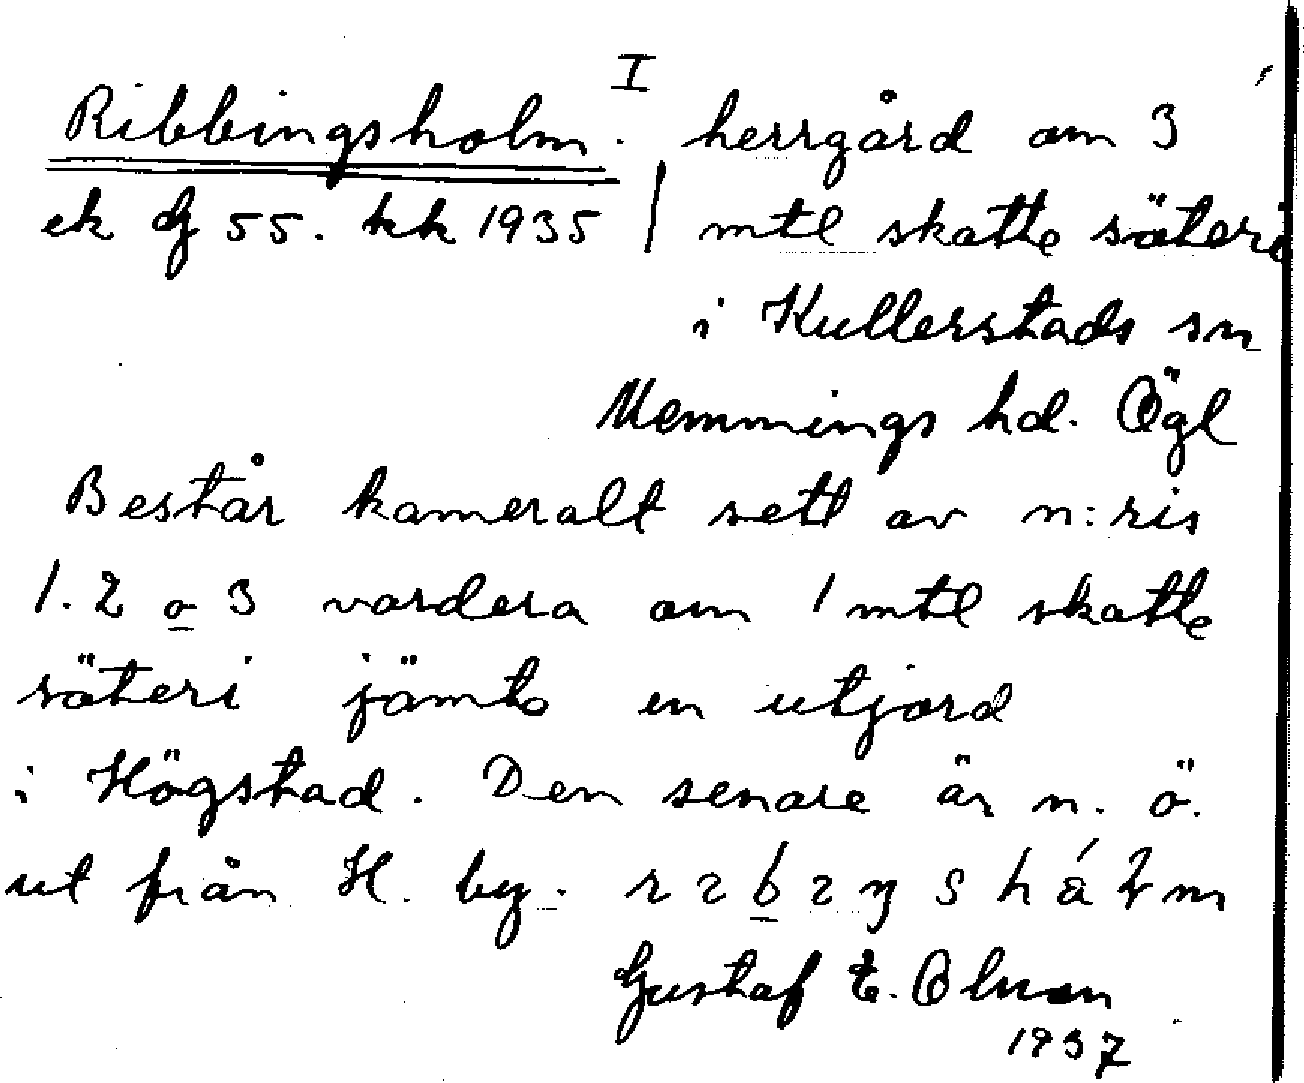 I
Ribbingsholm. herrgård om 3
ek bl 55. kk 1935 / mtl skatte säteri
i Kullerstads sn
Memmings hd. Ögl
Består kameralt sett av n:ris
1. 2 o 3 vardera om 1 mtl skatte
säteri jämte en utjord
i Högstad. Den senare är n. ö.
ut från H. by.
Gustaf E. Olman
1937